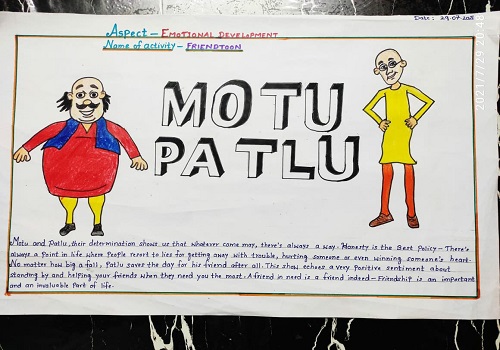 Date : 29.07.2021
Aspect – EMOTIONAL DEVELOPMENT
Name of activity – FRIENDTOON
MOTU
PATLU
Motu and Patlu, their determination shows us that whatever come may, there's always a way. Honesty is the Best Policy – There's
always a point in life where people resort to lies for getting away with trouble, hurting someone or even winning someone's heart.
No matter how big a fall, Patlu saves the day for his friend after all. This show echoes a very positive sentiment about
standing by and helping your friends when they need you the most. A friend in need is a friend indeed – Friendship is an important
and an invaluable part of life.
2021/7/29 20:48